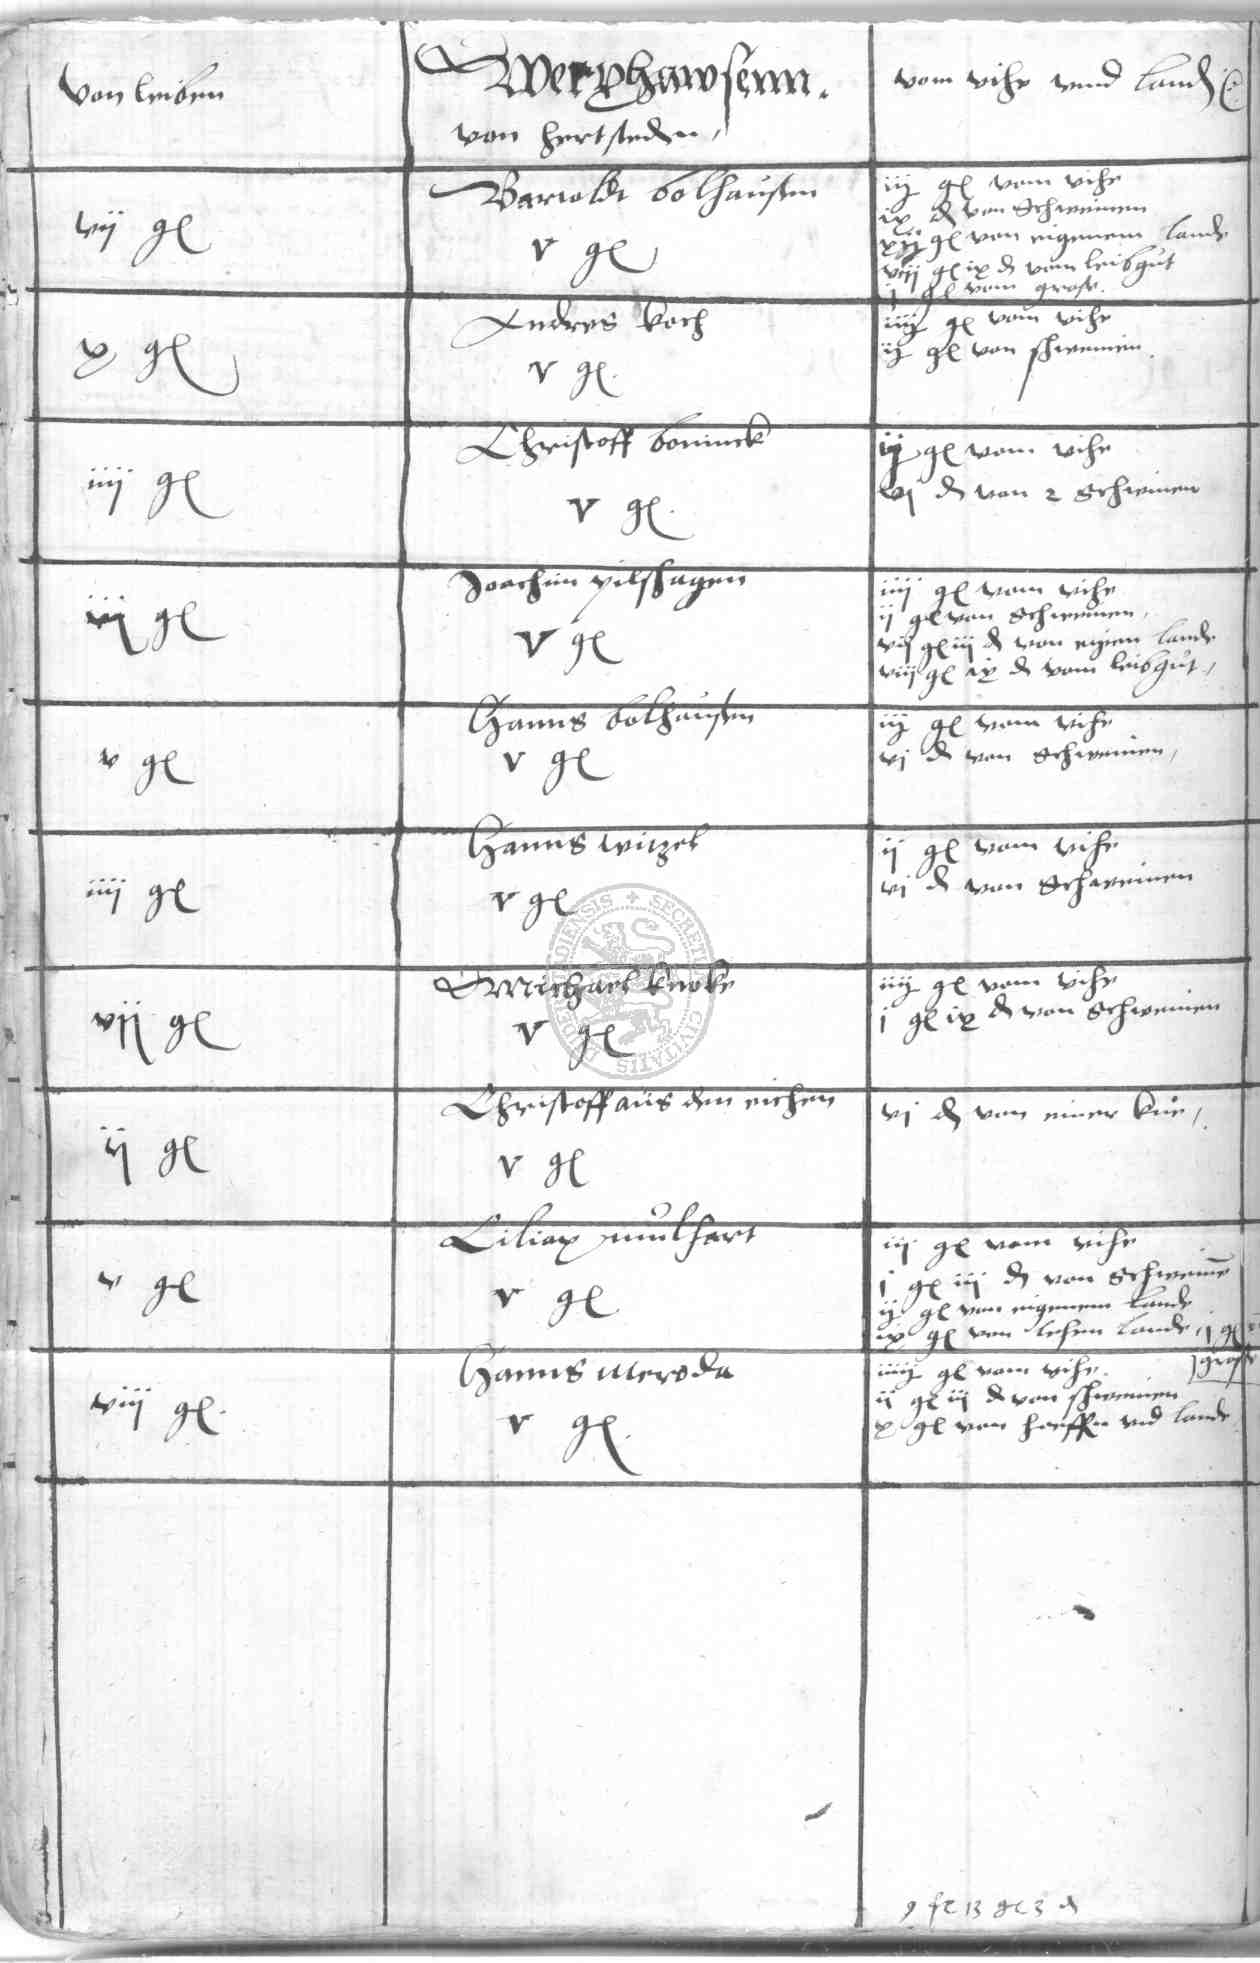 von leiben
Werxhawsenn.
von hertsteden,
vom vihe vnnd landt
vij gl
Bartoldt bolhausen
v gl
iij gl vom vihe
ix d von Schweinen
gl von eigenem lande
viij gl ix d vom leibgut
j gl vom grase.
x gl
Andres koch
v gl.
iiij gl vom vihe
ij gl von schweinen
iiij gl
Christoff boninck
v gl.
ij gl vom vihe
vj d von 2 Schweinen
gl
Joachim pilshagen
v gl
iiij gl vom vihe
ij gl von Schweinen,
vij gl iij d von eigen lande
viij gl ix d vom leibgut,
v gl
Hanns bolhausen
v gl
iij gl vom vihe
vj d von Schweinen,
iiij gl
Hanns witzel
v gl
ij gl vom vihe
vj d von Schweinen
vij gl
Michael knoke
v gl
iiij gl vom vihe
j gl ix d von Schweinen
ij gl
Christoff aus den eichen
v gl
vj d von einer kue,
v gl
Ciliax mulhart
v gl
iij gl vom vihe
j gl iij d von Schweinē
ij gl von eigenem lande
ix gl von lehen lande, j gl
grase
viij gl.
Hanns Meroda
v gl.
iiij gl vom vihe.
ij gl iij d von schweinen
x gl von hauffen vnd lande
9 fl 13 gl 3 d
SECRETUM CIVITATIS DUDERSTADIENSIS